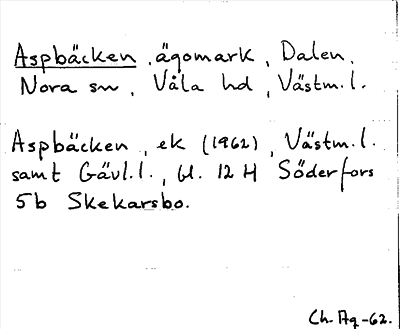 Aspbäcken, ägomark, Dalen,
Nora sn, Våla hd, Västm.l.
Aspbäcken, ek (1962), Västm.l.
samt Gävl.l., bl. 12 H Söderfors
5b Skekarsbo.
Ch. Åg -62.